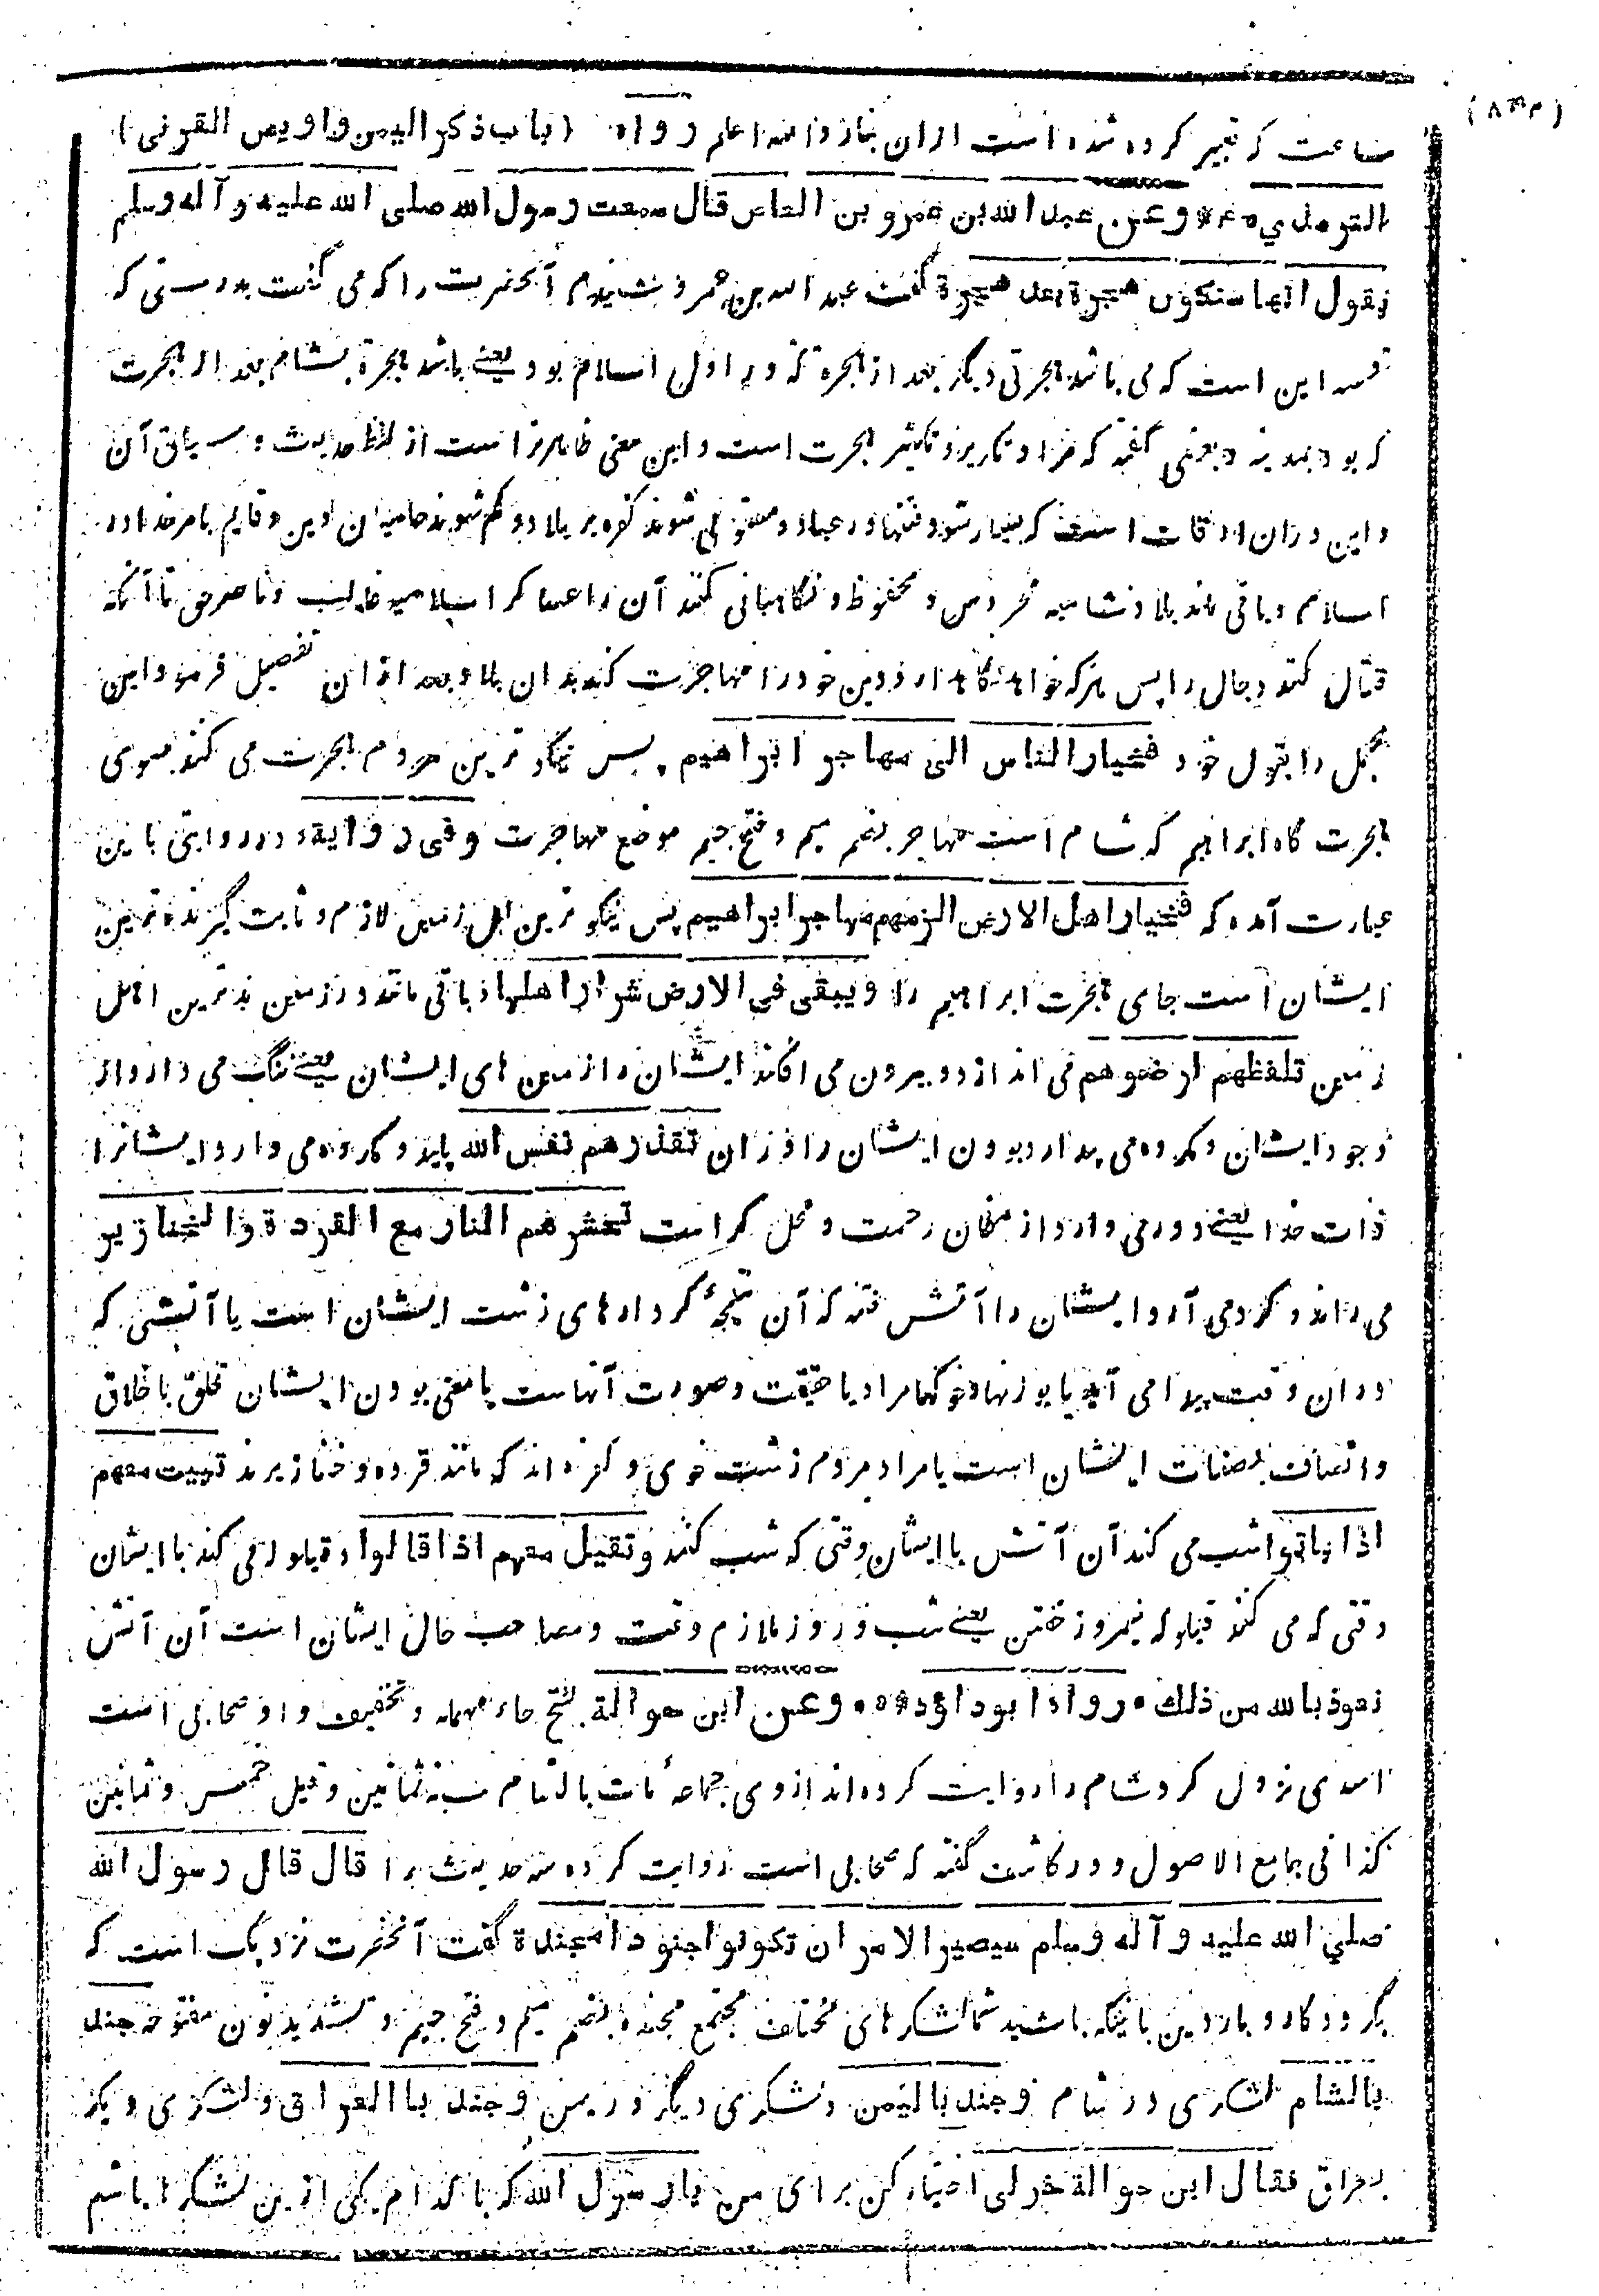 (باب ذکر الیمن و اویس القرنی)
ساعت که تعبیر کرده شده است ازان بنار واللہ اعلم رواه
الترمذي * وعن عبد الله بن عمرو بن العاص قال سمعت رسول الله صلی الله علیه و آله وسلم
یقول انها ستکون هجرة بعد هجرة گفت عبد الله بن عمرو شنیدم آنحضرت را که می گفت بدرستی که
قصه این است که می باشد هجرتی دیگر بعد از هجرة که در اول اسلام بود یعنے باشد هجرة بشام بعد از هجرت
که بود بمدینه و بعضی گفته که مراد تکریر و تکثیر هجرت است و این معنی ظاهرتر است از لفظ حدیث و سیاق آن
و این در آن اوقات است که بسیار شود فتنها در عباد و مستولی شوند کفره بر بلاد و کم شوند حامیان دین و قایم بامر خدا در
اسلام و باقی ماند بلاد شامیه محروس و محفوظ و نگاهبانی کنند آن را عساکر اسلامیه غالب و ناصر حق تا آنکه
قتال کنند دجال را پس هر که خواهد نگاهدارد دین خود را مهاجرت کند بدان بلاد و بعد ازان تفصیل فرمود این
مجمل را بقول خود فخیار الناس الی مهاجر ابراهیم پس نیکوترین مردم هجرت می کند بسوی
هجرت گاه ابراهیم که شام است مهاجر بضم میم و فتح جیم موضع مهاجرت وفی روایة و در روایتی باین
عبارت آمده که فخیار اهل الارض الزمهم مهاجر ابراهیم پس نیکوترین اهل زمین لازم و ثابت گیرنده ترین
ایشان است جای هجرت ابراهیم را ویبقی فی الارض شرار اهلها و باقی ماند در زمین بدترین اهل
زمین تلفظهم ارضوهم می اندازد و بیرون می افکند ایشان را زمین های ایشان یعنے ننگ می دارد از
وجود ایشان و مکروه می پندارد بودن ایشان را در آن تقذرهم نفس الله پلید و مکروه می دارد ایشانرا
ذات خدا یعنے دور می دارد از مکان رحمت و محل کرامت تحشرهم النار مع القردة والخنازیر
می راند و گرد می آرد ایشان را آتش فتنه که آن نتیجۂ کردارهای زشت ایشان است یا آتشی که
دران وقت پیدا می آید با بوزنها و خوکها مراد یا حقیقت و صورت آنهاست یا معنی بودن ایشان تخلق باخلاق
و اتصاف بصفات ایشان است یا مراد مردم زشت خوی و کفره اند که مانند قرده و خنازیرند تبیت معهم
اذا باتوا شب می کند آن آتش با ایشان وقتی که شب کنند و تقیل معهم اذا قالوا و قیلوله می کند با ایشان
وقتی که می کنند قیلوله نیمروز خفتن یعنے شب و روز ملازم وقت و مصاحب حال ایشان است آن آتش
نعوذ بالله من ذلك • رواه ابوداؤد • وعن ابن حوالة بفتح حاء مهمله و تخفیف واو صحابی است
اسدی نزول کرد شام را روایت کرده اند از وی جماعۀ مات بالشام سنة ثمانین وقیل خمس و ثمانین
کذا فی جامع الاصول و در کاشف گفته که صحابی است روایت کرده سه حدیث را قال قال رسول الله
صلی الله علیه و آله وسلم سیصیر الامر ان تکونوا جنودا مجندة گفت آنحضرت نزدیک است که
بگردد کار و بار دین باینکه باشید شما لشکرهای مختلف مجتمع مجندة بضم میم و فتح جیم و تشدید نون مفتوحه جند
بالشام لشکری در شام و جند بالیمن و لشکری دیگر در یمن و جند بالعراق و لشکری دیگر
بعراق فقال ابن حوالة خرلی اختیار کن برای من یا رسول الله که با کدام یکی ازین لشکرا باشم